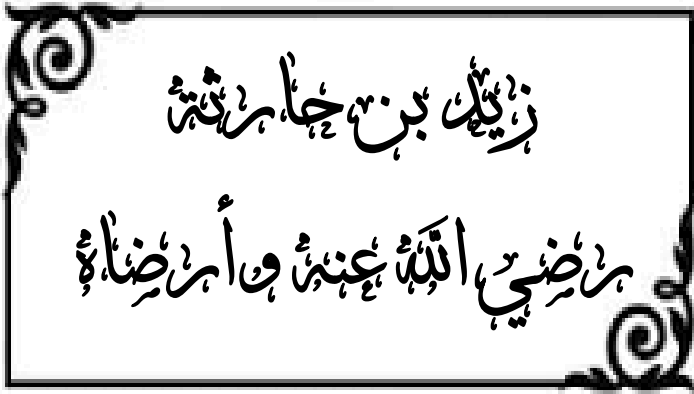 زيد بن حارثة
رضي الله عنه وأرضاه